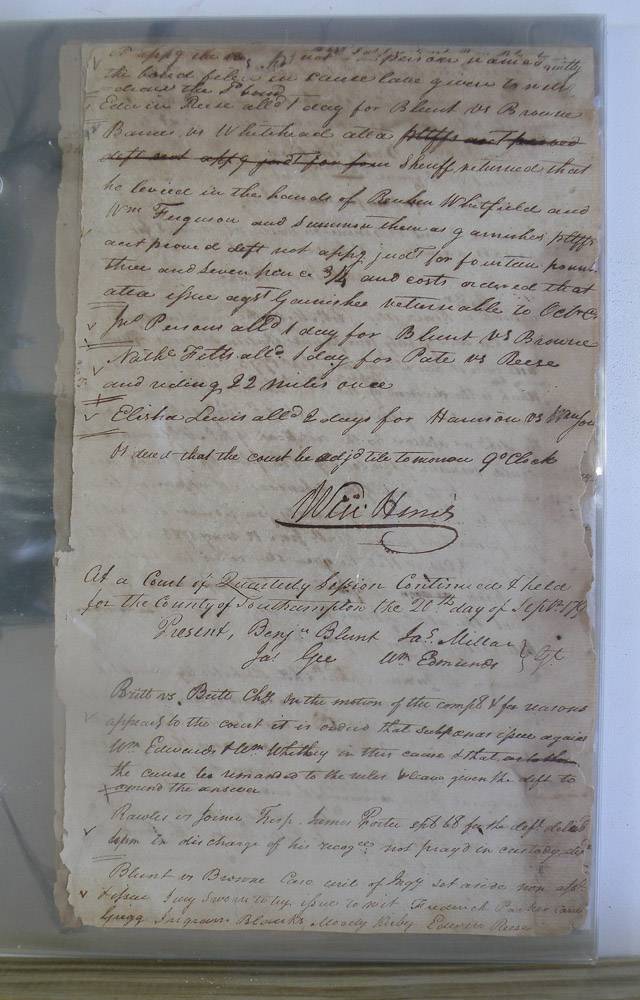 the bond filed in cause leave given to
Edwin Reese alld 1 day for Blunt vs Browne
Barnes vs Whitehead atta
deft not appg judt for four Sheriff returned that
he levied in the hands of Reuben Whitfield and
Wm Ferguson and Summon them as garnishes pltffs
acct proved deft not appg judt for fourteen pounds
three and seven pence 3/4 and costs ordered that
atta issue agst Garnishee returnable to Octr
Jno Persons alld 1 day for Blunt vs Browne
Nathl Felts alld 1 day for Pate vs Reese
and riding 22 miles once
Elisha Lewis alld 2 days for Harrison vs
Ordered that the court be adjd till tomorrow 9 o Clock
Wm Hines
At a Court of Quarterly Session Continued & held
for the County of Southampton the 20th day of Septr
Present, Benjn Blunt Jas Millar
Jas Gee Wm Edmunds Gt
Britt vs Britt Chy On the motion of the complt & for reasons
appearg to the court it is ordered that subpoenas issue against
Wm Edwards & Wm Whitney in this cause & that
the cause be remanded to the rules & leave given the deft to
amend the answer
Rawles vs Joiner Tresp. James Porter spl bl for the deft delivd
him in discharge of his recogce not prayd in custody
Blunt vs Browne Case writ of Inqy set aside non asst
& issue Jury Sworn to try issue to wit Frederick Parker
Gregg Ingram Blanks Moody Kirby Edwin Reese